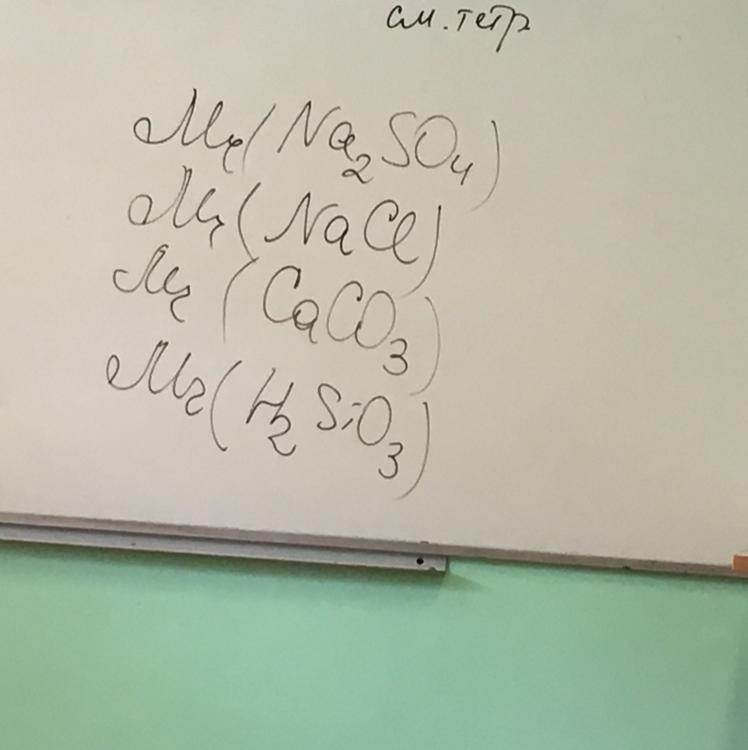 см. тетр
Mr(Na₂SO₄)
Mr(NaCl)
Mr(CaCO₃)
Mr(H₂SiO₃)